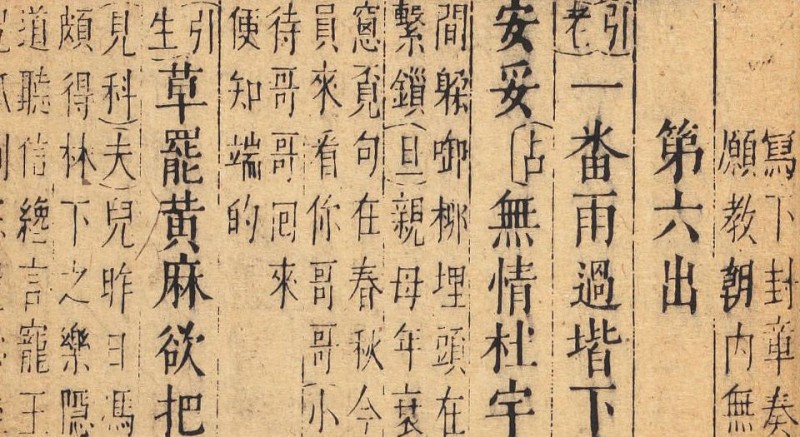 寫下封章奏
願教朝内無
第六出
引 老 一畨雨過堦下
安妥 占 無情杜宇
間躲啣梛埋頭在
繫鎖 旦 親母年衰
窻覔句在春秋今
員來看你哥哥 小
待哥哥囘來
便知端的
引 生 草罷黄麻欲把
見科 夫 兒昨日馮
頗得林下之樂隱
道聽信纔言寵王